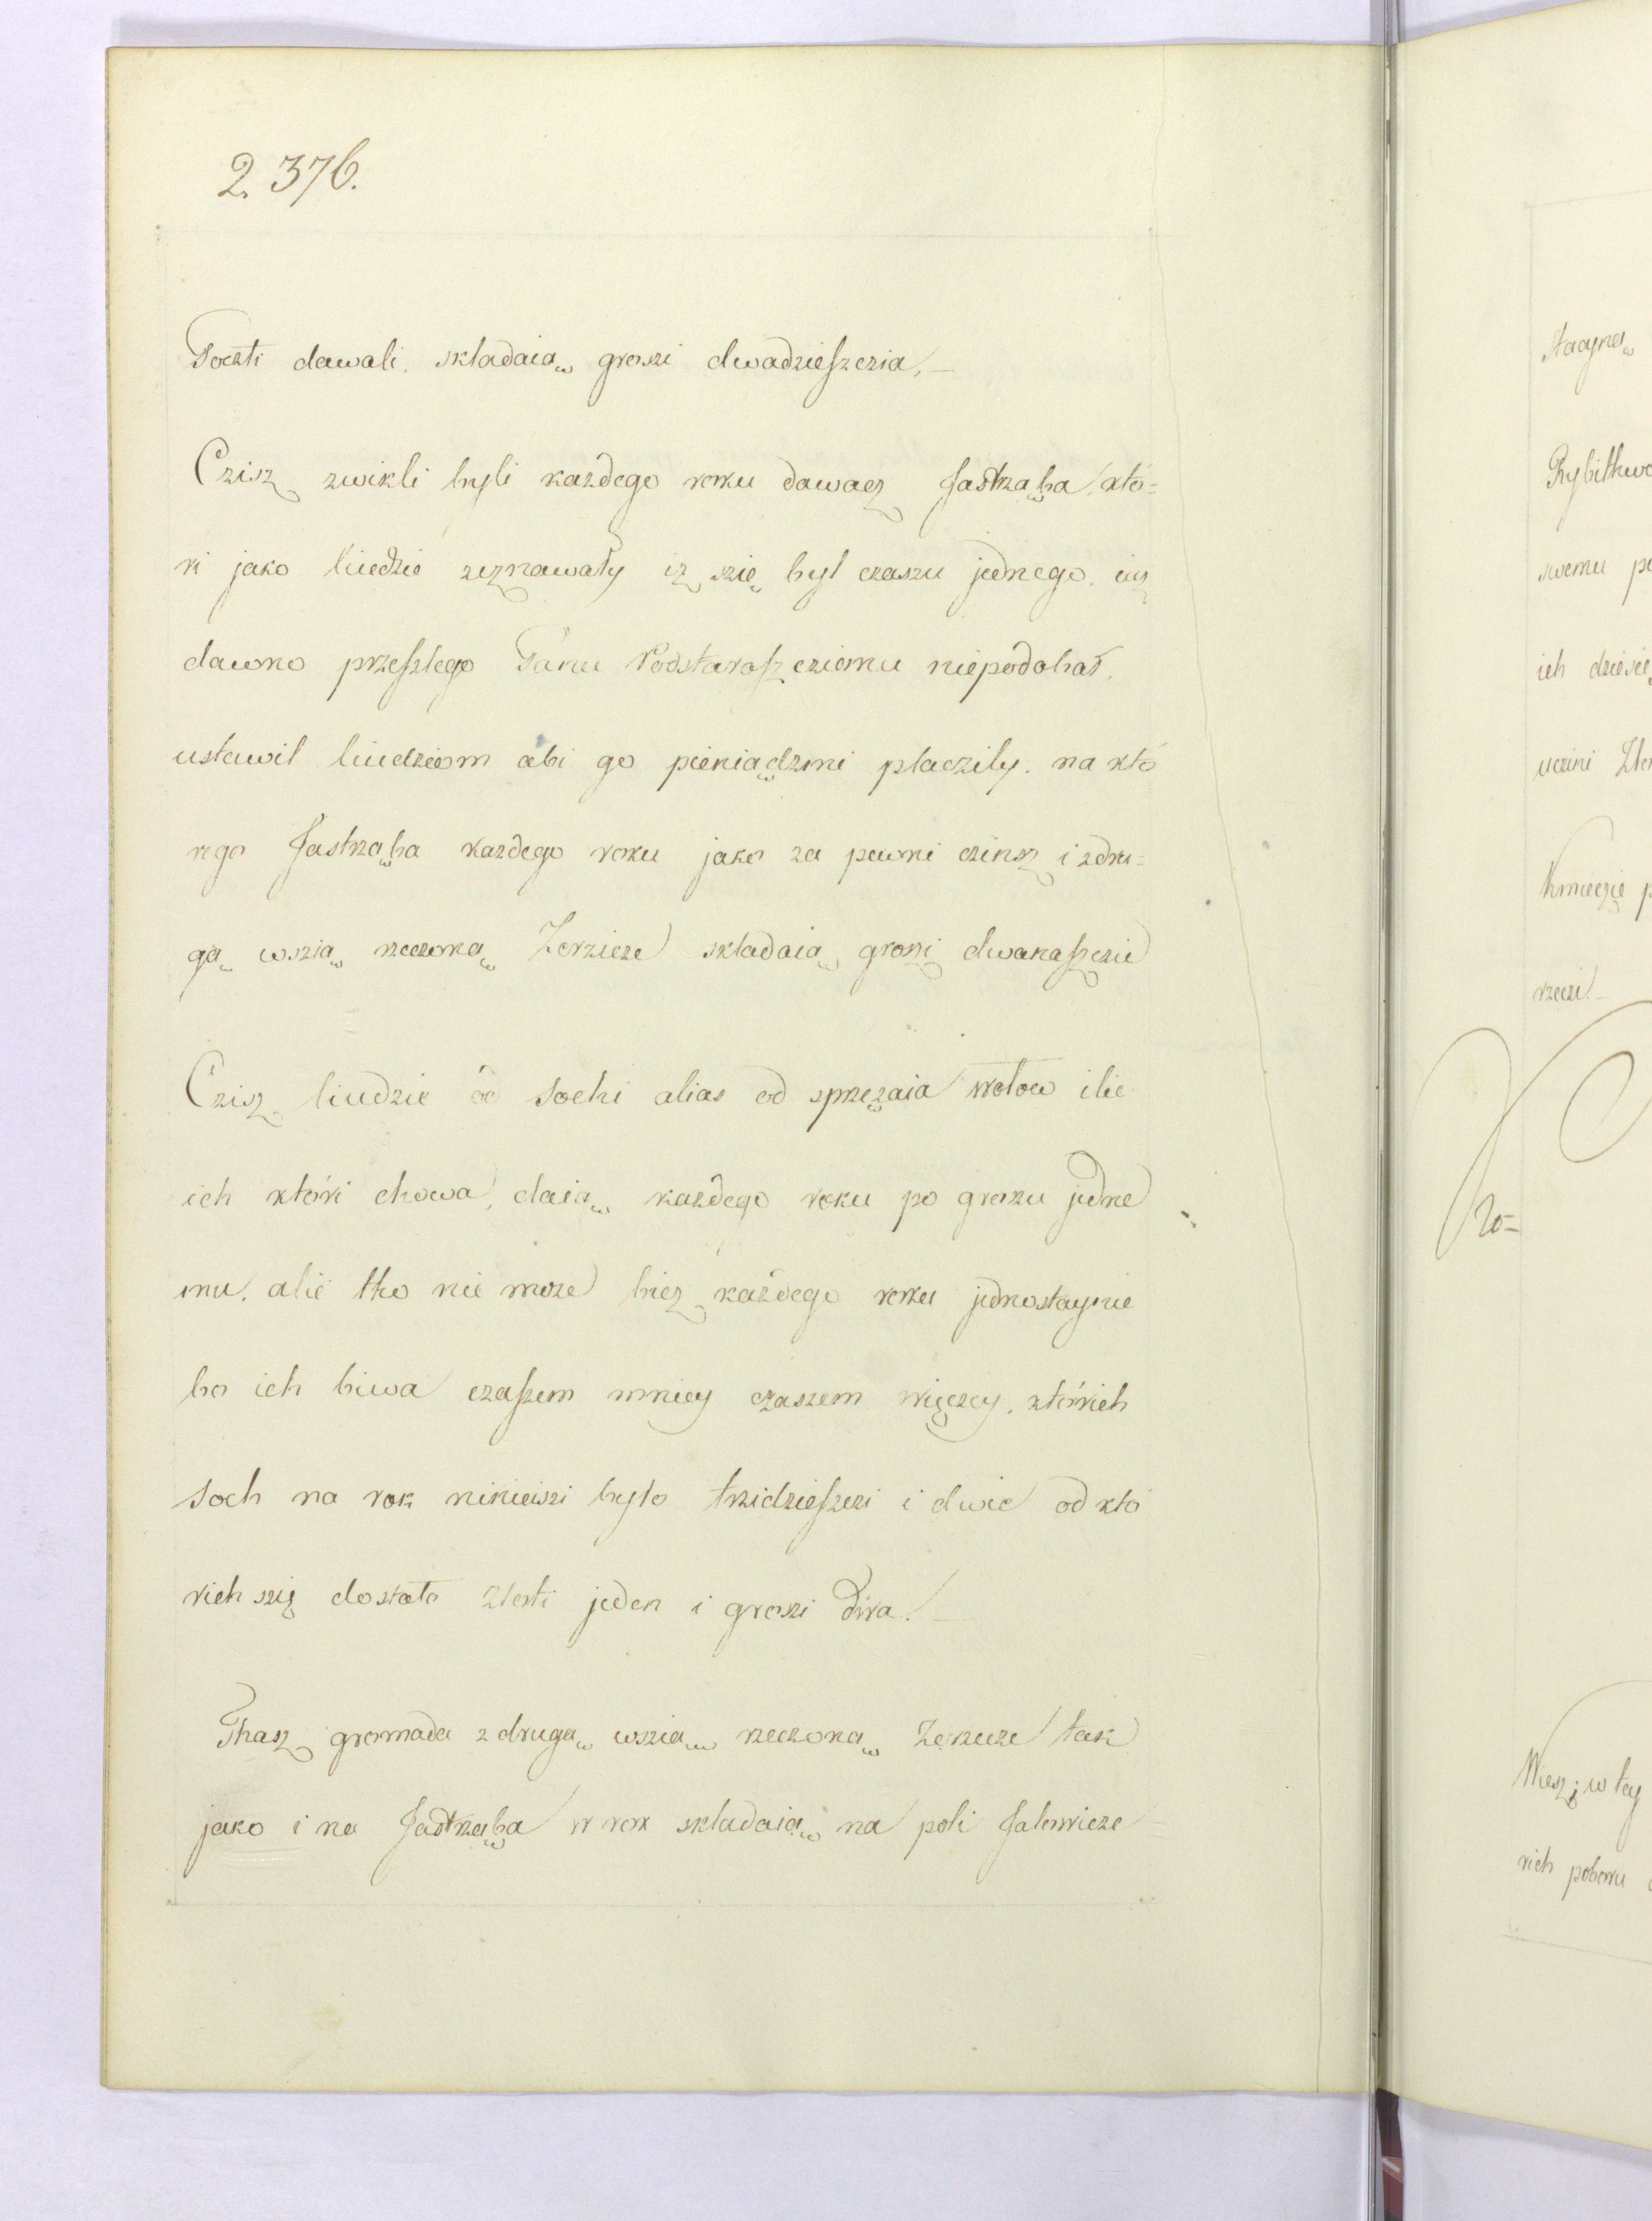 2.376.
Poczti dawali, składaią groszi dwadzieszczia,—
Czisz zwikli byli kazdego roku dawacz Jastrząba, któ=
ri jako liudzie zeznawały iz szię byl czaszu jednego, iuz
dawno przeszlego Panu Podstaroszcziemu niepodobał,
ustawil liudziom abi go pieniądzmi placzily, na któ
rego Jastrząba kazdego roku jako za pewni czinsz i zdru=
gą wszią rzeczoną Zerzicze składaią groszi dwanaszczie
Czisz liudzie od Sochi alias od sprzęzaia wołow ilie
ich któri chowa, daią kazdego roku po groszu jedne
mu, alie tho nie moze bicz kazdego roku jednostaynie
bo ich biwa czaszem mniey czaszem więczey, którich
soch na rok ninieiszi było trzidzieszczi i dwie od któ
rich szię dostało złoti jeden i groszi dwa.—
Thasz gromada z drugą wszią rzeczoną Zerzicze tak
jako i na Jastrząba w rok składaią na poli Jalowicze
stacyną
Rybitkwo
swemu
ich
uczini
Kmieczie
rzeczi.—
Ro=
Wiesz w tey
rich poboru